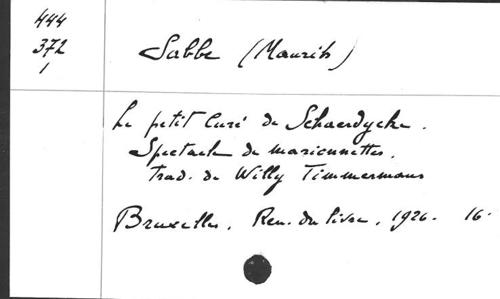 444
372
1
Sabbe (Maurits)
Le petit Curé de Schaerdycke.
Spectacle de marionnettes.
trad. de Willy Timmermans
Bruxelles, Ren. du livre, 1926. 16°